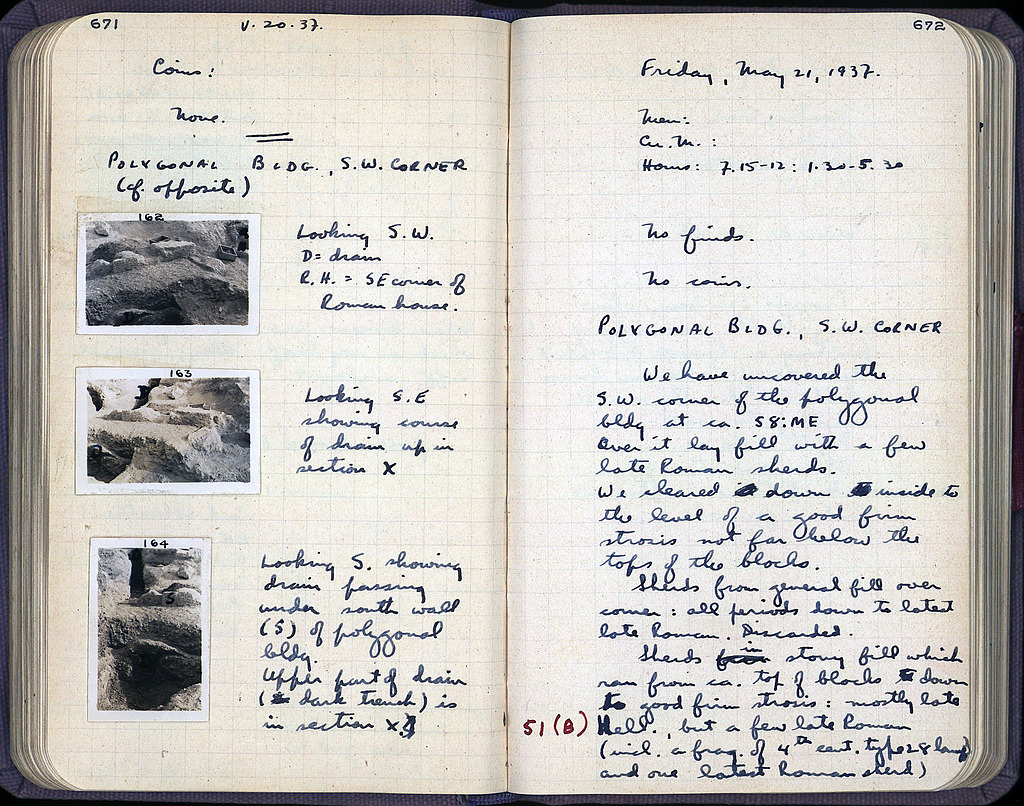 671
V. 20. 37.
Coins:
None.
POLYGONAL BLDG., S.W. CORNER
(cf. opposite)
162
Looking S.W.
D = drain
R.H. = SE corner of
Roman house.
163
Looking S.E
showing course
of drain up in
section X
164
S
Looking S. showing
drain passing
under south wall
(S) of polygonal
bldg.
Upper part of drain
(dark trench) is
in section X.
672
Friday, May 21, 1937.
Men:
Cu. M.:
Hours: 7.15-12: 1.30-5.30
No finds.
No coins.
POLYGONAL BLDG., S.W. CORNER
We have uncovered the
S.W. corner of the polygonal
bldg at ca. 58:ME
Over it lay fill with a few
late Roman sherds.
We cleared down inside to
the level of a good firm
strosis not far below the
tops of the blocks.
Sherds from general fill over
corner: all periods down to latest
late Roman. Discarded.
Sherds in stony fill which
ran from ca. top of blocks down
to good firm strosis: mostly late
51 (B) Hell., but a few late Roman
(incl. a frag. of 4th cent. type 28 lamp
and one latest Roman sherd)